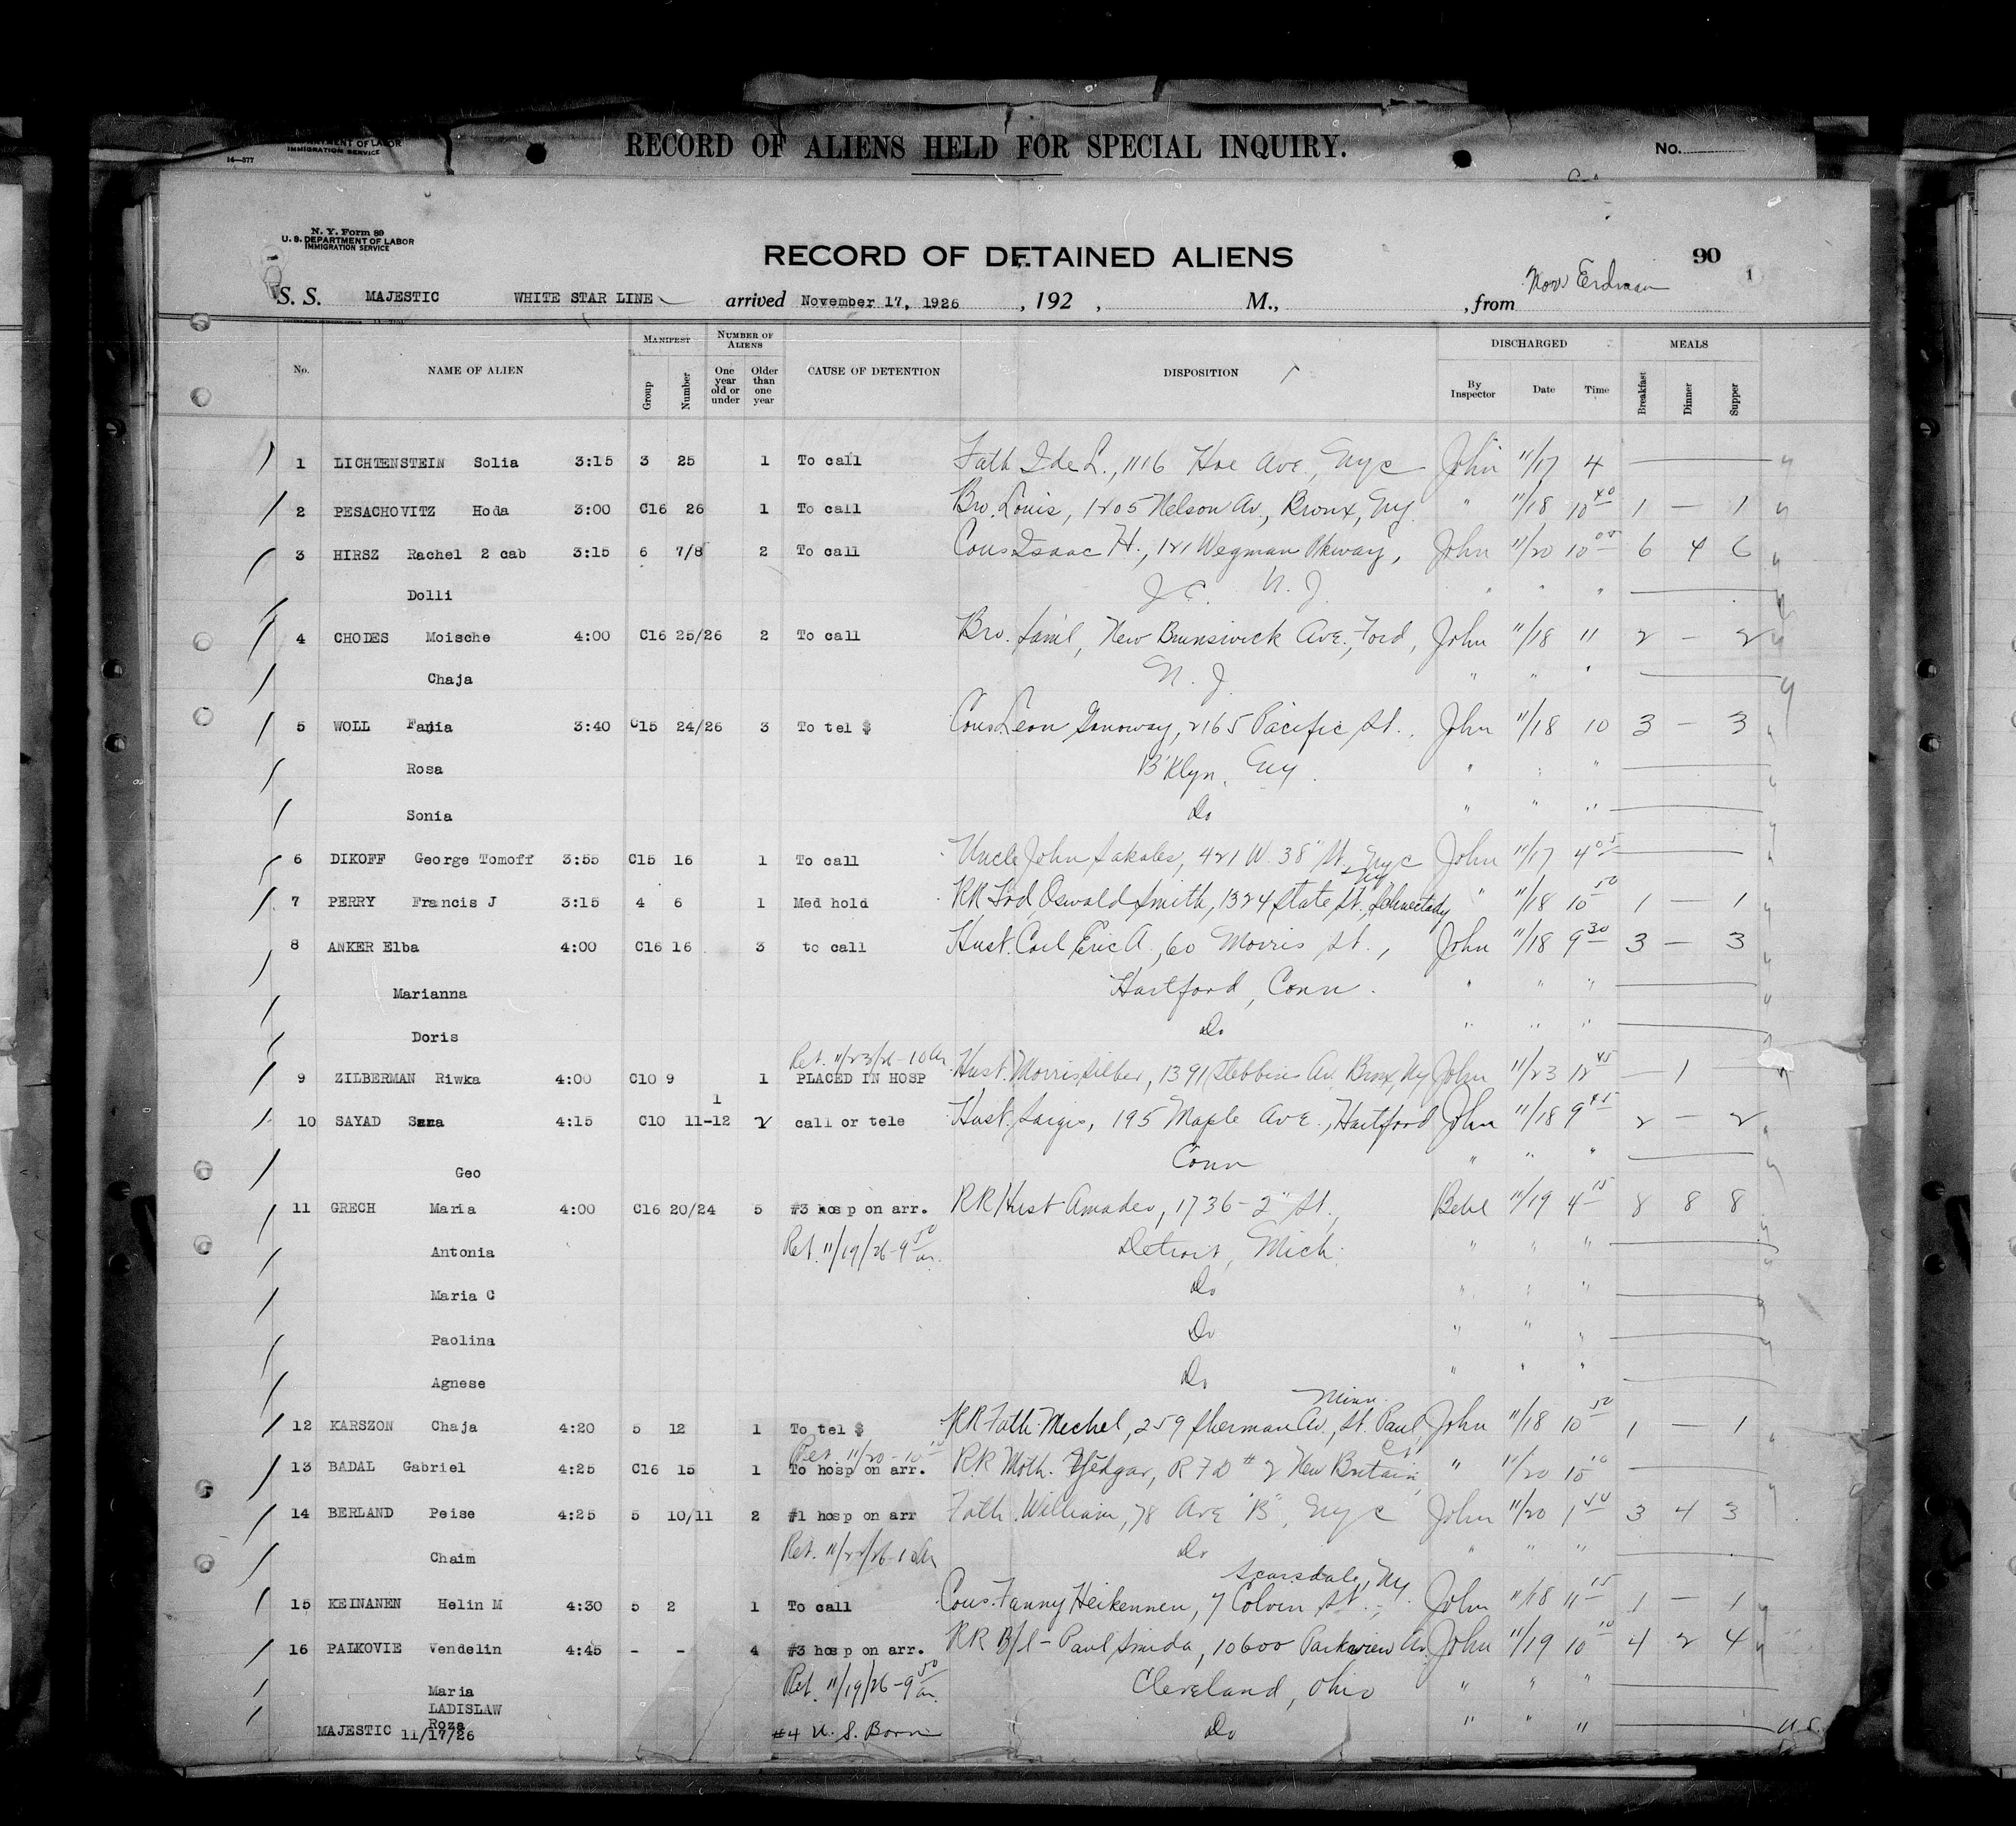 14—377
MENT OF LABOR
IMMIGRATION SERVICE
RECORD OF ALIENS HELD FOR SPECIAL INQUIRY.
No.
N. Y. Form 89
U. S. DEPARTMENT OF LABOR
IMMIGRATION SERVICE
RECORD OF DETAINED ALIENS
90
1
S. S. MAJESTIC WHITE STAR LINE arrived November 17, 1926, 192 , M., , from Erdman
No. NAME OF ALIEN MANIFEST NUMBER OF ALIENS CAUSE OF DETENTION DISPOSITION DISCHARGED MEALS
Group Number One year old or under Older than one year By Inspector Date Time Breakfast Dinner Supper
1 LICHTENSTEIN Solia 3:15 3 25 1 To call Fath Ide L., 1116 Hoe Ave, Nyc John 11/17 4
2 PESACHOVITZ Hoda 3:00 C16 26 1 To call Bro. Louis, 1205 Nelson Av., Bronx, Ny " 11/18 10 40 1 — 1
3 HIRSZ Rachel 2 cab 3:15 6 7/8 2 To call Cous Isaac H., 121 Wegman Pkway, John 11/20 10 05 6 4 6
Dolli J C. N. J. " " "
4 CHODES Moische 4:00 C16 25/26 2 To call Bro. Saml, New Brunswick Ave., Ford, John 11/18 11 2 — 2
Chaja N. J. " " "
5 WOLL Fania 3:40 C15 24/26 3 To tel $ Cous. Leon, 2165 Pacific St., John 11/18 10 3 — 3
Rosa B'klyn, Ny. " " "
Sonia Do " " "
6 DIKOFF George Tomoff 3:55 C15 16 1 To call Uncle John Sakales, 421 W. 38" St., Nyc John 11/17 4 05
Ny
7 PERRY Francis J 3:15 4 6 1 Med hold RR Frd Oswald Smith, 1324 State St., Schnectady " 11/18 10 50 1 — 1
8 ANKER Elba 4:00 C16 16 3 to call Hust. Carl Eric A., 60 Morris St., John 11/18 9 30 3 — 3
Marianna Hartford, Conn. " " "
Doris Do " " "
Ret. 11/23/26-10 am
9 ZILBERMAN Riwka 4:00 C10 9 1 PLACED IN HOSP Hust. Morris Silber, 1391 Stebbins Av. Bronx, Ny John 11/23 12 45 — 1
1
10 SAYAD Sara 4:15 C10 11-12 2 call or tele Hust. Sargis, 195 Maple Ave., Hartford John 11/18 9 45 2 — 2
Geo Conn " " "
11 GRECH Maria 4:00 C16 20/24 5 #3 hosp on arr. RR Hust Amadeo, 1736-2" St., Bebl 11/19 4 15 8 8 8
Antonia Ret. 11/19/26-9 50 am. Detroit, Mich. " " "
Maria C Do " " "
Paolina Do " " "
Agnese Do " " "
Minn.
12 KARSZON Chaja 4:20 5 12 1 To tel $ RR Fath. Mechel, 259 Sherman Av., St. Paul, John 11/18 10 50 1 — 1
Ret. 11/20-10 10 Ct
13 BADAL Gabriel 4:25 C16 15 1 To hosp on arr. RR Moth. Yedgar, R F D # 2 New Britain, " 11/20 10 10
14 BERLAND Peise 4:25 5 10/11 2 #1 hosp on arr Fath. William, 78 Ave "B", Nyc John 11/20 1 40 3 4 3
Chaim Ret. Do " " "
Scarsdale, Ny.
15 KEINANEN Helin M 4:30 5 2 1 To call Cous. Fanny Heikennen, 7 Colvin St., John 11/18 11 15 1 — 1
16 PALKOVIE Vendelin 4:45 - - 4 #3 hosp on arr. RR B/l - Paul Smida, 10600 Parkview Av. John 11/19 10 10 4 2 4
Maria Ret. 11/19/26-9 50 am. Cleveland, Ohio " " "
LADISLAW
Roza #4 U. S. Born Do " " " U.S.
MAJESTIC 11/17/26